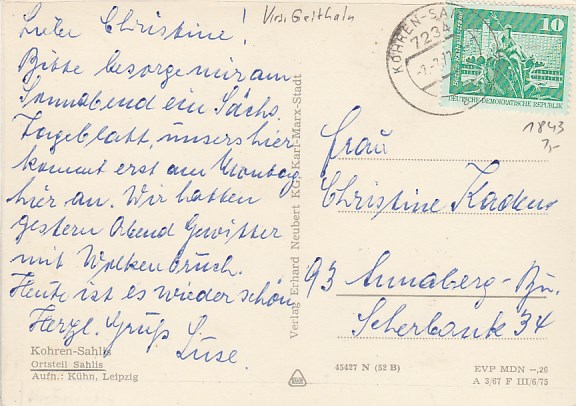 Liebe Christine!
Bitte besorge mir am
Sonnabend ein Sächs.
Tageblatt, unsers hier
kommt erst am Montag
hier an. Wir hatten
gestern Abend Gewitter
mit Wolkenbruch.
Heute ist es wieder schön
Herzl. Gruß
Luse.
Kohren-Sahlis
Ortsteil Sahlis
Aufn.: Kühn, Leipzig
Krs. Geithain
Verlag Erhard Neubert KG, Karl-Marx-Stadt
KOHREN-SA
7234
10
DEUTSCHE DEMOKRATISCHE REPUBLIK
1843
1,-
Frau
Christine Kaden
93 Annaberg-Bu.
Scherbank 34
45427 N (52 B)
EVP MDN –,20
A 3/67 F III/6/75